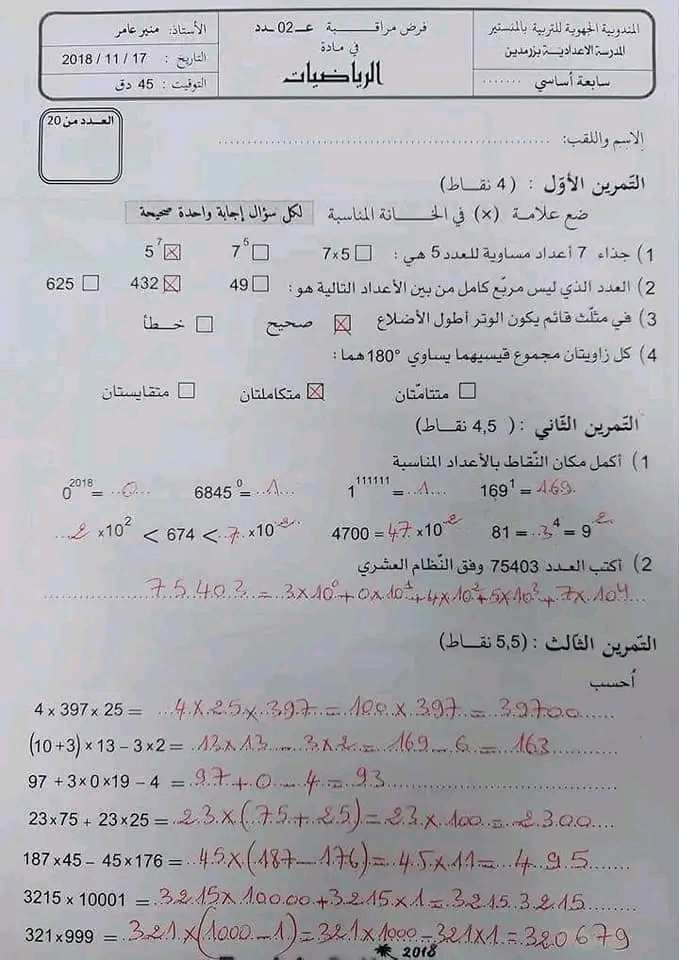 المندوبية الجهوية للتربية بالمنستير
المدرسة الاعدادية بزرمدين
سابعة أساسي ........
فرض مراقبة عـ02ـدد
في مادة
الرياضيات
الأستاذ: منير عامر
التاريخ : 17 / 11 / 2018
التوقيت : 45 دق
العدد من 20
الاسم واللقب: ........................................
التمرين الأول : (4 نقاط)
ضع علامة (×) في الخانة المناسبة لكل سؤال إجابة واحدة صحيحة
1) جذاء 7 أعداد مساوية للعدد 5 هي : ☐ 7×5 ☐ 7⁵ ☒ 5⁷
2) العدد الذي ليس مربّع كامل من بين الأعداد التالية هو : ☐ 49 ☒ 432 ☐ 625
3) في مثلّث قائم يكون الوتر أطول الأضلاع ☒ صحيح ☐ خطأ
4) كل زاويتان مجموع قيسيهما يساوي 180° هما :
☐ متتامّتان ☒ متكاملتان ☐ متقايستان
التمرين الثاني : ( 4,5 نقاط)
1) أكمل مكان النّقاط بالأعداد المناسبة
0²⁰¹⁸ = ..0... 6845⁰ = ..1.. 1¹¹¹¹¹¹ = ..1... 169¹ = 169.
..2 ×10² < 674 < .7. ×10² 4700 = 47 ×10² 81 = ..3⁴ = 9²
2) أكتب العدد 75403 وفق النّظام العشري
75403 = 3×10⁰ + 0×10¹ + 4×10² + 5×10³ + 7×10⁴
التمرين الثالث : (5,5 نقاط)
أحسب
4 × 397 × 25 = 4×25×397 = 100×397 = 39700
(10+3) × 13 – 3×2 = 13×13 – 3×2 = 169 – 6 = 163
97 + 3×0×19 – 4 = 97 + 0 – 4 = 93
23×75 + 23×25 = 23×(75+25) = 23×100 = 2300
187×45 – 45×176 = 45×(187–176) = 45×11 = 495
3215 × 10001 = 3215×10000 + 3215×1 = 32153215
321×999 = 321×(1000–1) = 321×1000 – 321×1 = 320679
2018